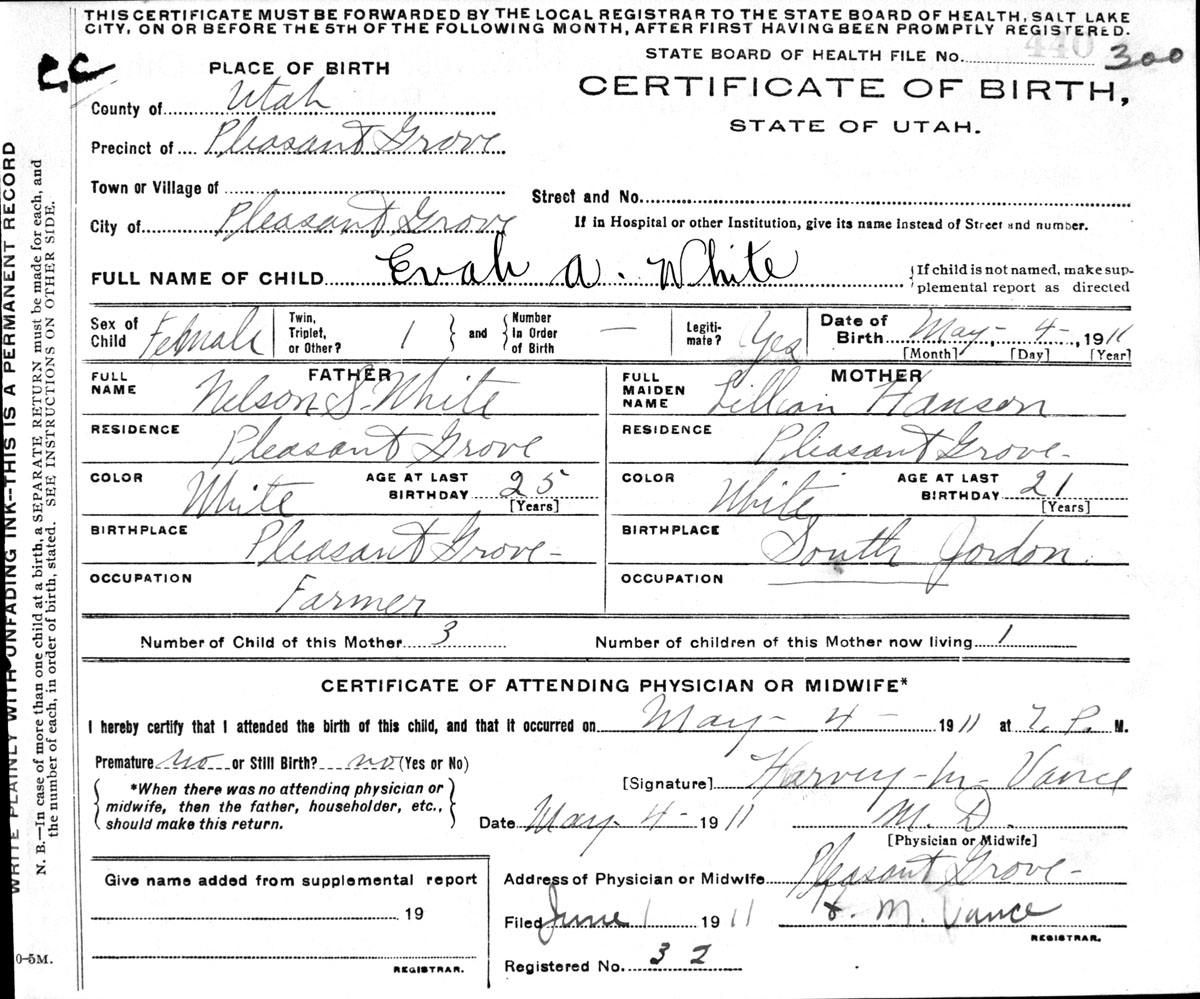 THIS CERTIFICATE MUST BE FORWARDED BY THE LOCAL REGISTRAR TO THE STATE BOARD OF HEALTH, SALT LAKE
CITY, ON OR BEFORE THE 5TH OF THE FOLLOWING MONTH, AFTER FIRST HAVING BEEN PROMPTLY REGISTERED.
440
STATE BOARD OF HEALTH FILE No. 300
PLACE OF BIRTH
CERTIFICATE OF BIRTH,
STATE OF UTAH.
County of Utah
Precinct of Pleasant Grove
Town or Village of
Street and No.
City of Pleasant Grove
If in Hospital or other Institution, give its name instead of Street and number.
FULL NAME OF CHILD Evah A. White
If child is not named, make sup-
plemental report as directed
Sex of Child Female
Twin, Triplet, or Other? 1 and Number In Order of Birth —
Legiti-mate? Yes
Date of Birth May - 4 - , 1911
[Month] [Day] [Year]
FATHER
FULL NAME Nelson S. White
MOTHER
FULL MAIDEN NAME Lillian Hanson
RESIDENCE Pleasant Grove
RESIDENCE Pleasant Grove -
COLOR White AGE AT LAST BIRTHDAY 25 [Years]
COLOR White AGE AT LAST BIRTHDAY 21 [Years]
BIRTHPLACE Pleasant Grove -
BIRTHPLACE South Jordon.
OCCUPATION Farmer
OCCUPATION
Number of Child of this Mother 3
Number of children of this Mother now living 1
CERTIFICATE OF ATTENDING PHYSICIAN OR MIDWIFE*
I hereby certify that I attended the birth of this child, and that it occurred on May - 4 - 1911 at 7. P. M.
Premature no or Still Birth? no (Yes or No)
*When there was no attending physician or
midwife, then the father, householder, etc.,
should make this return.
[Signature] Harvey - M - Vance
Date May - 4 - 1911
M. D.
[Physician or Midwife]
Give name added from supplemental report
19
REGISTRAR.
Address of Physician or Midwife Pleasant Grove -
Filed June 1 1911
M. Vance
REGISTRAR.
Registered No. 32
WRITE PLAINLY WITH UNFADING INK--THIS IS A PERMANENT RECORD
N. B.—In case of more than one child at a birth, a SEPARATE RETURN must be made for each, and
the number of each, in order of birth, stated. SEE INSTRUCTIONS ON OTHER SIDE.
0-5M.